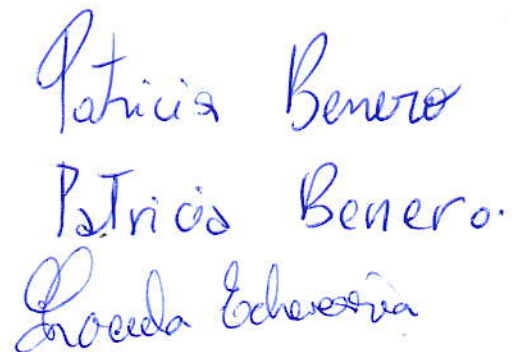 Patricia Benero
Patricia Benero.
Echeverria